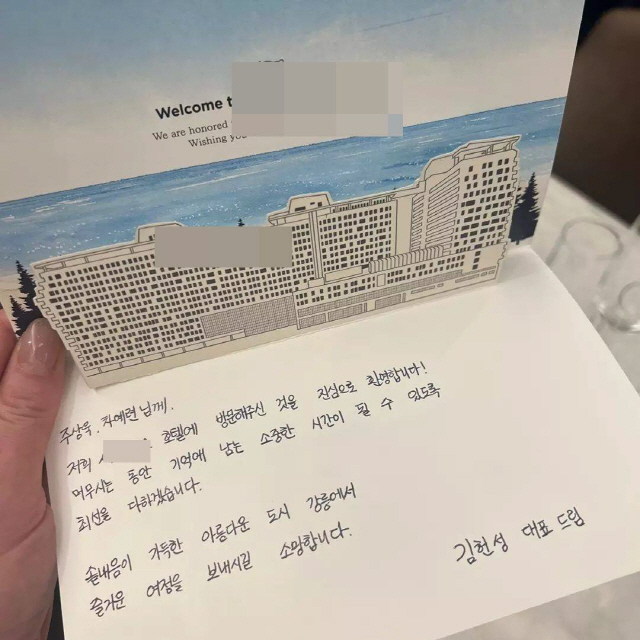 Welcome t
We are honored
Wishing you
주상욱, 차예련 님께.
저희 호텔에 방문해주신 것을 진심으로 환영합니다!
머무시는 동안 기억에 남는 소중한 시간이 될 수 있도록
최선을 다하겠습니다.
솔내음이 가득한 아름다운 도시 강릉에서
즐거운 여정을 보내시길 소망합니다.
김헌성 대표 드림